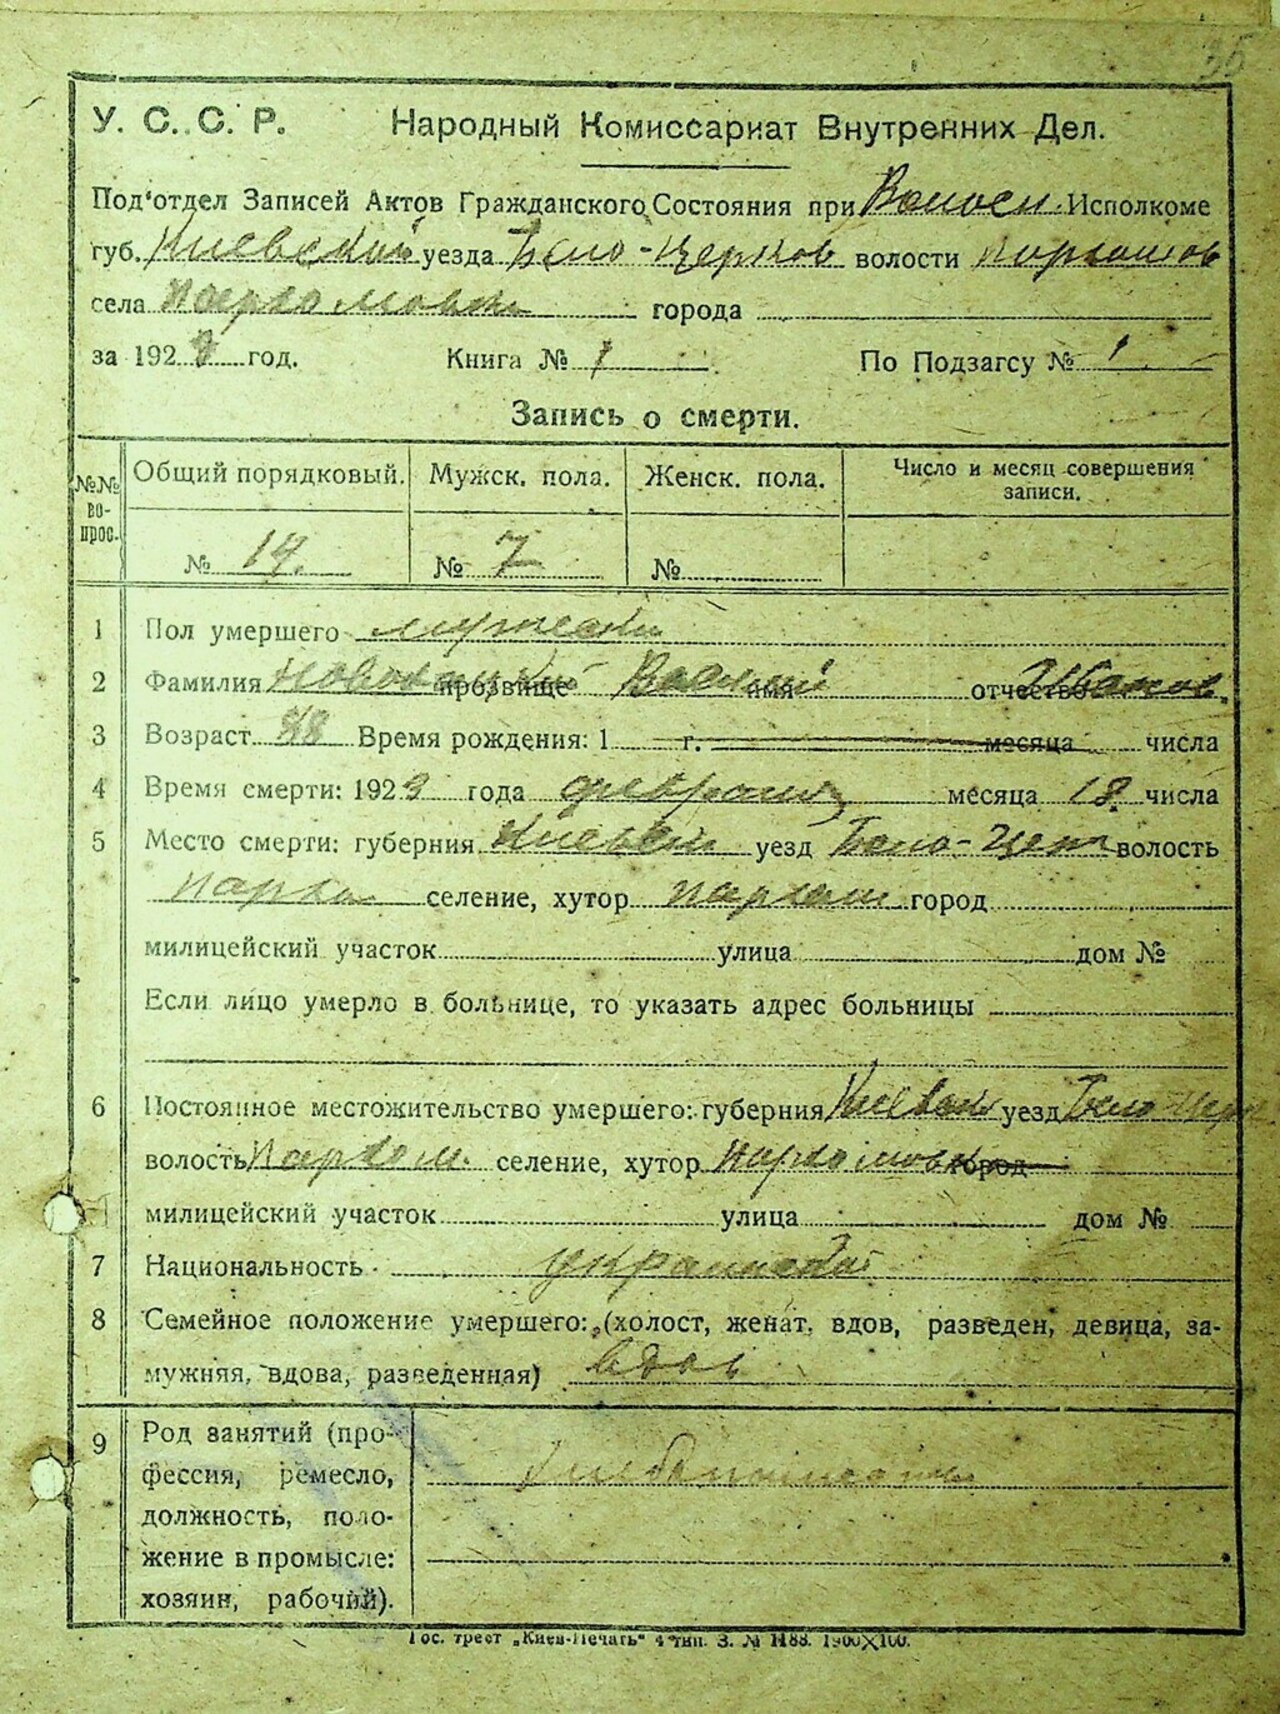 35
У. С. С. Р. Народный Комиссариат Внутренних Дел.
Под'отдел Записей Актов Гражданского Состояния при Исполкоме
губ. Киевской уезда Бело-Церков волости Пархомов
села Пархомовки города
за 192 год. Книга № 1 По Подзагсу № 1
Запись о смерти.
№№ во-прос. Общий порядковый. Мужск. пола. Женск. пола. Число и месяц совершения записи.
№ 14. № 7 №
1 Пол умершего мужеский
2 Фамилия прозвище Василий имя отчество Иванов.
3 Возраст 88 Время рождения: 1 г. месяца числа
4 Время смерти: 1923 года февраля месяца 18 числа
5 Место смерти: губерния уезд Бело-Цер волость
Пархом селение, хутор Пархом город
милицейский участок улица дом №
Если лицо умерло в больнице, то указать адрес больницы
6 Постоянное местожительство умершего: губерния уезд Бело-Церк
волость Пархом. селение, хутор Пархомовка город
милицейский участок улица дом №
7 Национальность
8 Семейное положение умершего: (холост, женат, вдов, разведен, девица, за-
мужняя, вдова, разведенная) вдов
9 Род занятий (про-
фессия, ремесло,
должность, поло-
жение в промысле:
хозяин, рабочий).
Гос. трест „Киев-Печать" 4 тип. З. № 1188. 1900X100.